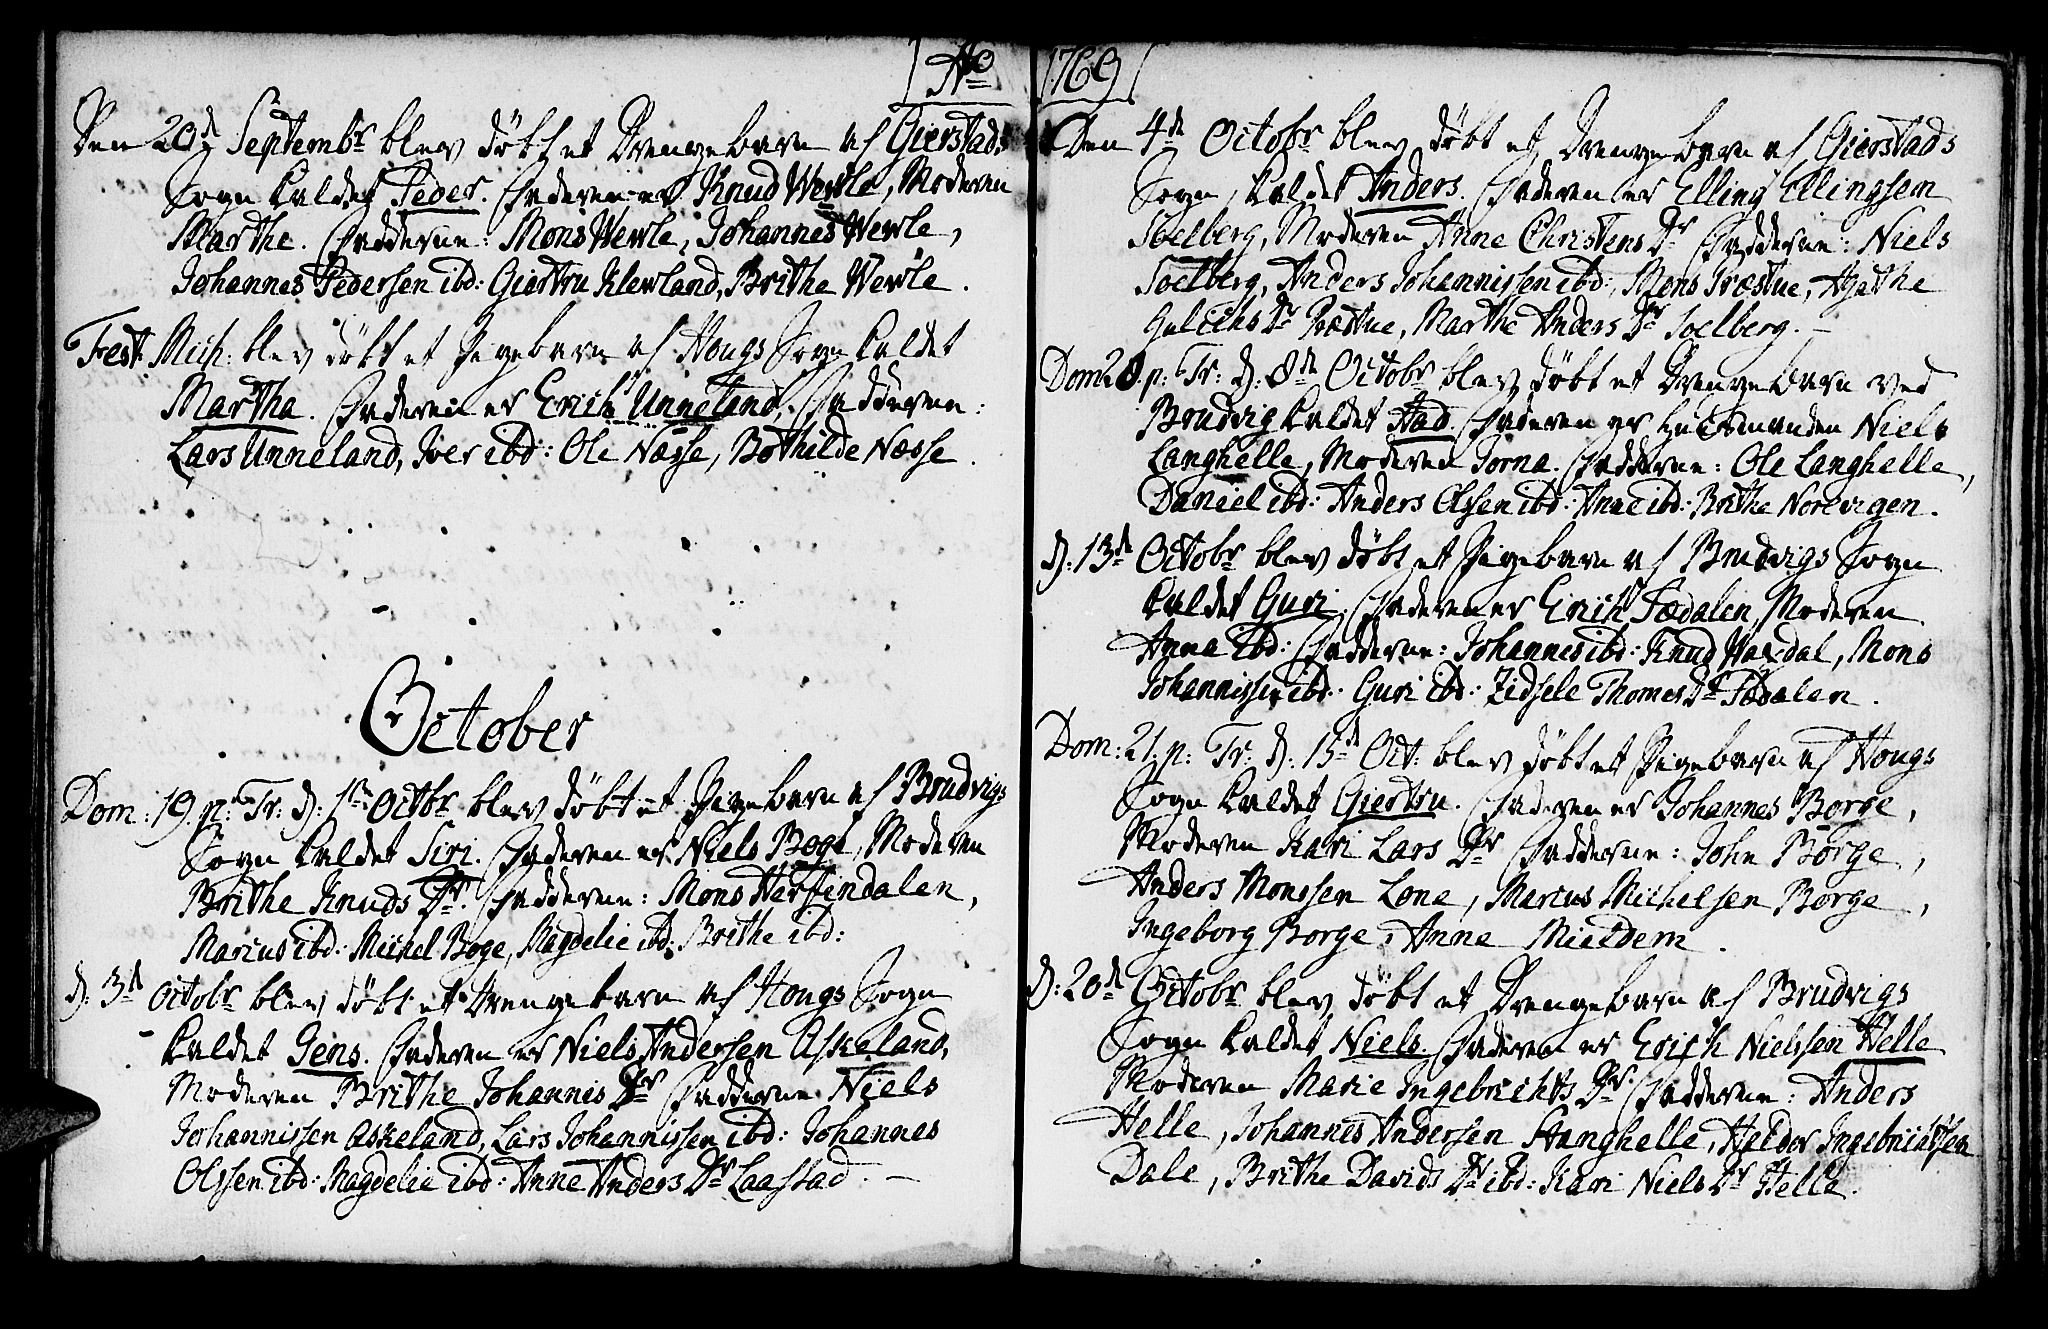 Ao
Den 20de Septembr blev döbt et Drengebarn af Gierstads
Sogn kaldet Peder. Faderen er Knud Wevle, Moderen
Marthe. Fadderne: Mons Wevle, Johannes Wevle,
Johannes Pedersen ibd: Giertru Klevland, Brithe Wevle.
Fest. Mich: blev döbt et Pigebarn af Hougs Sogn kaldet
Martha. Faderen er Erich Unneland. Fadderne:
Lars Unneland, Iver ibd: Ole Næsse, Bothilde Næsse.
October
Dom: 19. p: Tr: d: 1te Octobr blev döbt et Pigebarn af Brudvigs
Sogn kaldet Siri. Faderen er Niels Boge, Moderen
Brithe Knuds Dr. Fadderne: Mons Herfindalen,
Marcus ibd: Michel Boge, Magdelie ibd: Brithe ibd:
d: 3de Octobr blev döbt et Drengebarn af Hougs Sogn
kaldet Jens. Faderen er Niels Andersen Askeland,
Moderen Brithe Johannis Dr Fadderne Niels
Johannissen Askeland, Lars Johannissen ibd: Johannes
Olssen ibd: Magdelie ibd: Anne Anders Dr Laastad. —
1769
Den 4de Octobr blev döbt et Drengebarn af Gierstads
Sogn, kaldet Anders. Faderen er Elling Ellingsen
Soelberg, Moderen Anne Christens Dr Fadderne: Niels
Soelberg, Anders Johannissen ibd:, Mons Træstue, Agathe
Gulichs Dr Træstue, Marthe Anders Dr Soelberg. —
Dom: 20. p: Tr: d: 8de Octobr blev döbt et Drengebarn ved
Brudvig kaldet Aad. Faderen er Huusmanden Niels
Langhelle, Moderen Jorna. Fadderne: Ole Langhelle,
Daniel ibd: Anders Olssen ibd: Anne ibd: Brithe Norevigen.
d: 13de Octobr blev döbt et Pigebarn af Brudvigs Sogn
kaldet Guri. Faderen er Erich Fædalen, Moderen
Anna ibd: Fadderne: Johannes ibd: Knud Haxdal, Mons
Johannissen ibd: Guri ibd: Zidsele Thomes Dr Fædalen.
Dom: 21. p: Tr: d: 15de Oct: blev döbt et Pigebarn af Hougs
Sogn kaldet Giertru. Faderen er Johannes Borge,
Moderen Kari Lars Dr Fadderne: John Borge,
Anders Monssen Lone, Marcus Michelsen Borge,
Ingeborg Borge, Anne Mieldem.
d: 20de Octobr blev döbt et Drengebarn af Brudvigs
Sogn kaldet Niels. Faderen er Erich Nielssen Helle
Moderen Marie Ingebrichts Dr. Fadderne: Anders
Helle, Johannes Andersen Stanghelle, Haldor Ingebrichtsen
Dale, Brithe Davids Dr ibd: Kari Niels Dr Helle.